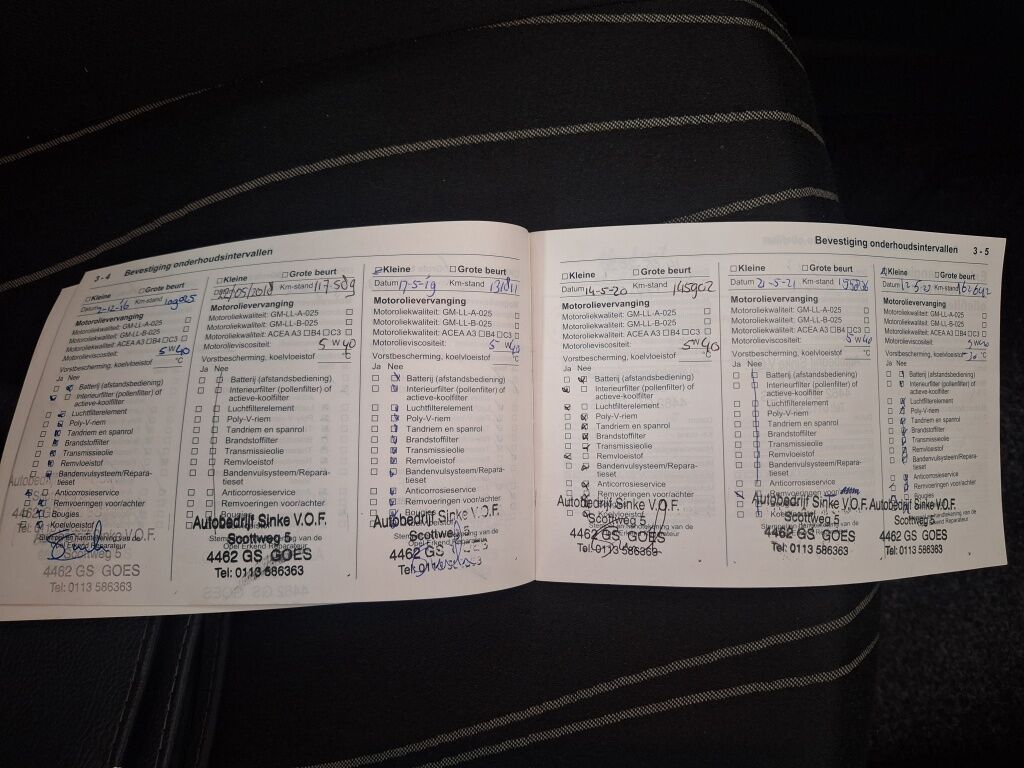 3 - 4 Bevestiging onderhoudsintervallen
Kleine Grote beurt
Datum 2-12-16 Km-stand
Motorolievervanging
Motoroliekwaliteit: GM-LL-A-025
Motoroliekwaliteit: GM-LL-B-025
Motoroliekwaliteit: ACEA A3 B4 C3
Motorolieviscositeit: 5W40
Vorstbescherming, koelvloeistof °C
Ja Nee
Batterij (afstandsbediening)
Interieurfilter (pollenfilter) of
actieve-koolfilter
Luchtfilterelement
Poly-V-riem
Tandriem en spanrol
Brandstoffilter
Transmissieolie
Remvloeistof
Bandenvulsysteem/Repara-
tieset
Anticorrosieservice
Remvoeringen voor/achter
Bougies
Koelvloeistof
Autobedrijf Sinke V.O.F.
Scottweg 5
4462 GS GOES
Tel: 0113 586363
Kleine Grote beurt
22/05/2018 Km-stand 117589
Motorolievervanging
Motoroliekwaliteit: GM-LL-A-025
Motoroliekwaliteit: GM-LL-B-025
Motoroliekwaliteit: ACEA A3 B4 C3
Motorolieviscositeit: 5W40
Vorstbescherming, koelvloeistof °C
Ja Nee
Batterij (afstandsbediening)
Interieurfilter (pollenfilter) of
actieve-koolfilter
Luchtfilterelement
Poly-V-riem
Tandriem en spanrol
Brandstoffilter
Transmissieolie
Remvloeistof
Bandenvulsysteem/Repara-
tieset
Anticorrosieservice
Remvoeringen voor/achter
Bougies
Autobedrijf Sinke V.O.F.
Scottweg 5
4462 GS GOES
Tel: 0113 586363
Kleine Grote beurt
Datum 17-5-19 Km-stand
Motorolievervanging
Motoroliekwaliteit: GM-LL-A-025
Motoroliekwaliteit: GM-LL-B-025
Motoroliekwaliteit: ACEA A3 B4 C3
Motorolieviscositeit: 5W40
Vorstbescherming, koelvloeistof °C
Ja Nee
Batterij (afstandsbediening)
Interieurfilter (pollenfilter) of
actieve-koolfilter
Luchtfilterelement
Poly-V-riem
Tandriem en spanrol
Brandstoffilter
Transmissieolie
Remvloeistof
Bandenvulsysteem/Repara-
tieset
Anticorrosieservice
Remvoeringen voor/achter
Bougies
Autobedrijf Sinke V.O.F.
Scottweg 5
4462 GS GOES
Tel: 0113 586363
Bevestiging onderhoudsintervallen 3 - 5
Kleine Grote beurt
Datum 14-5-20 Km-stand 145902
Motorolievervanging
Motoroliekwaliteit: GM-LL-A-025
Motoroliekwaliteit: GM-LL-B-025
Motoroliekwaliteit: ACEA A3 B4 C3
Motorolieviscositeit: 5W40
Vorstbescherming, koelvloeistof °C
Ja Nee
Batterij (afstandsbediening)
Interieurfilter (pollenfilter) of
actieve-koolfilter
Luchtfilterelement
Poly-V-riem
Tandriem en spanrol
Brandstoffilter
Transmissieolie
Remvloeistof
Bandenvulsysteem/Repara-
tieset
Anticorrosieservice
Remvoeringen voor/achter
Autobedrijf Sinke V.O.F.
Scottweg 5
4462 GS GOES
Tel: 0113 586363
Kleine Grote beurt
Datum 21-5-21 Km-stand
Motorolievervanging
Motoroliekwaliteit: GM-LL-A-025
Motoroliekwaliteit: GM-LL-B-025
Motoroliekwaliteit: ACEA A3 B4 C3
Motorolieviscositeit: 5W40
Vorstbescherming, koelvloeistof °C
Ja Nee
Batterij (afstandsbediening)
Interieurfilter (pollenfilter) of
actieve-koolfilter
Luchtfilterelement
Poly-V-riem
Tandriem en spanrol
Brandstoffilter
Transmissieolie
Remvloeistof
Bandenvulsysteem/Repara-
tieset
Anticorrosieservice
Remvoeringen voor
Autobedrijf Sinke V.O.F.
Scottweg 5
4462 GS GOES
Tel: 0113 586363
Kleine Grote beurt
Datum Km-stand
Motorolievervanging
Motoroliekwaliteit: GM-LL-A-025
Motoroliekwaliteit: GM-LL-B-025
Motoroliekwaliteit: ACEA A3 B4 C3
Motorolieviscositeit: 5W40
Vorstbescherming, koelvloeistof °C
Ja Nee
Batterij (afstandsbediening)
Interieurfilter (pollenfilter) of
actieve-koolfilter
Luchtfilterelement
Poly-V-riem
Tandriem en spanrol
Brandstoffilter
Transmissieolie
Remvloeistof
Bandenvulsysteem/Repara-
tieset
Anticorrosieservice
Remvoeringen voor/achter
Bougies
Autobedrijf Sinke V.O.F.
Scottweg 5
4462 GS GOES
Tel: 0113 586363